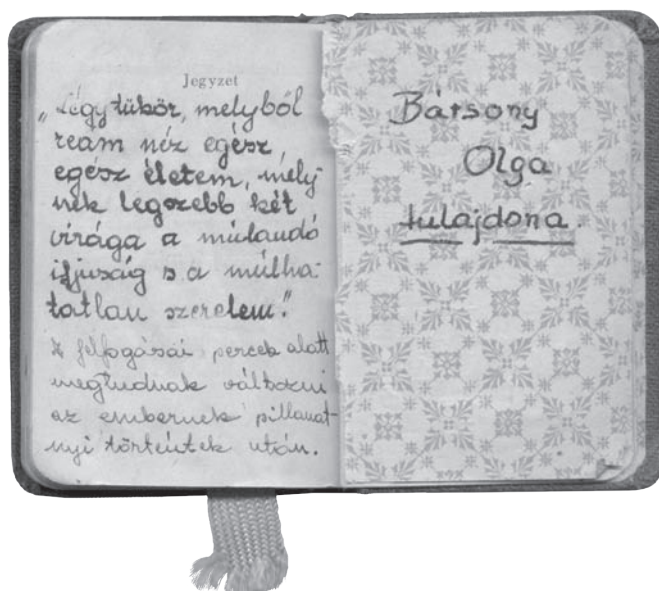 Jegyzet
„Légy tükör, melyből
reám néz egész,
egész életem, mely-
nek legszebb két
virága a múlandó
ifjuság s a múlha-
tatlan szerelem."
felfogásai percek alatt
megtudnak változni
az embernek pillanat-
nyi történtek után.
Bársony
Olga
tulajdona.